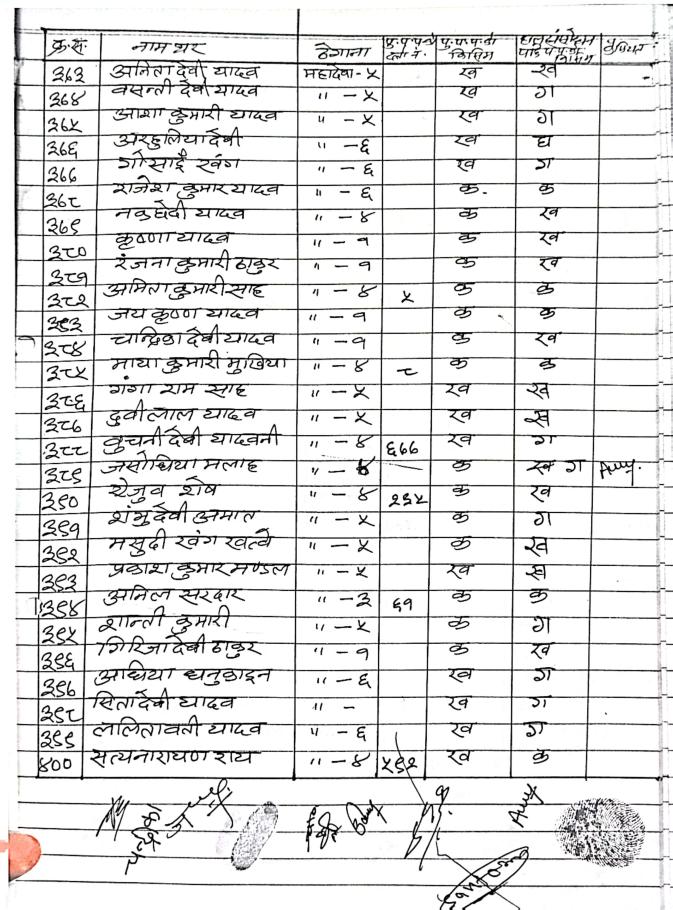 क्र.सं. नामथर ठेगाना
३७३ अनितादेवी यादव महादेवा-५ ख ख
३७४ वसन्ती देवी यादव " -५ ख ग
३७५ आशा कुमारी यादव " -५ ख ग
३७६ अरहुलियादेवी " -६ ख घ
३७७ गोसाई खंग " -६ ख ग
३७८ राजेश कुमार यादव " -६ क. क
३७९ नकछेदी यादव " -४ क ख
३८० कृष्णा यादव " -१ क ख
३८१ रंजना कुमारी ठाकुर " -१ क ख
३८२ अमिता कुमारी साह " -४ ५ क क
३८३ जय कृष्ण यादव " -१ क क
३८४ चन्द्रिका देवी यादव " -१ क ख
३८५ माया कुमारी मुखिया " -४ ८ क क
३८६ गंगा राम साह " -५ ख ख
३८७ दुवीलाल यादव " -५ ख ख
३८८ कुचनी देवी यादवनी " -४ ६७७ ख ग
३८९ जसोधिया मलाह " - क ख ग
३९० शेष " -४ २३५ क ख
३९१ शंभुदेवी अमात " -५ क ग
३९२ मसुदी खंग खत्वे " -५ क ख
३९३ प्रकाश कुमार मण्डल " -५ ख ख
३९४ अनिल सरदार " -३ ६१ क क
३९५ शान्ती कुमारी " -५ क ग
३९६ गिरिजादेवी ठाकुर " -१ क ख
३९७ आधिया धनुकाइन " -६ ख ग
३९८ सितादेवी यादव " - ख ग
३९९ ललितावती यादव " -६ ख ग
४०० सत्यनारायण राय " -४ ५९२ ख क
चन्द्रिका